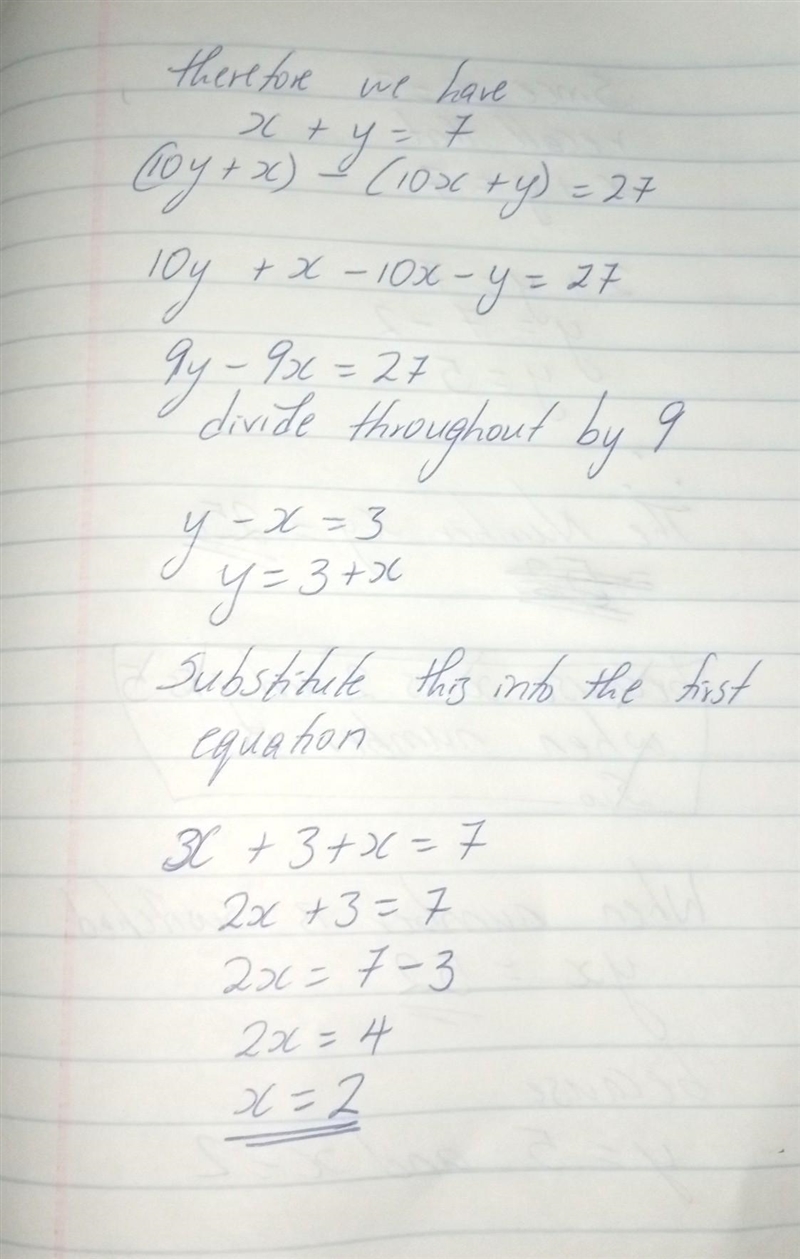 therefore we have
x + y = 7
(10y + x) - (10x + y) = 27
10y + x - 10x - y = 27
9y - 9x = 27
divide throughout by 9
y - x = 3
y = 3 + x
Substitute this into the first
equation
x + 3 + x = 7
2x + 3 = 7
2x = 7 - 3
2x = 4
x = 2